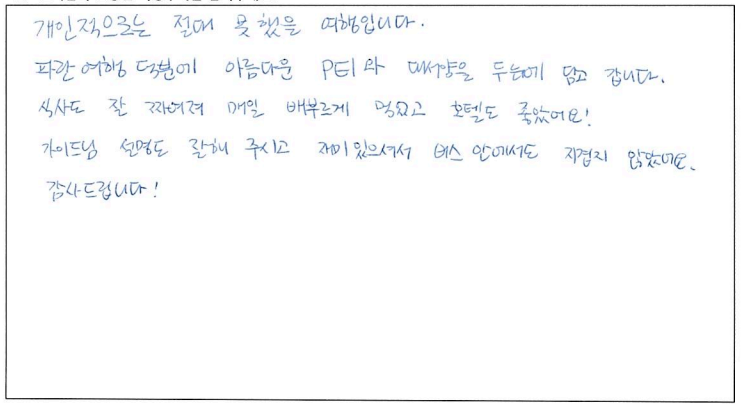 개인적으로는 절대 못했을 여행입니다.
파란여행 덕분에 아름다운 PEI와 대서양을 두눈에 담고 갑니다.
식사도 잘 짜여져 매일 배부르게 먹었고 호텔도 좋았어요!
가이드님 설명도 잘해 주시고 재미있으셔서 버스 안에서도 지겹지 않았어요.
감사드립니다!